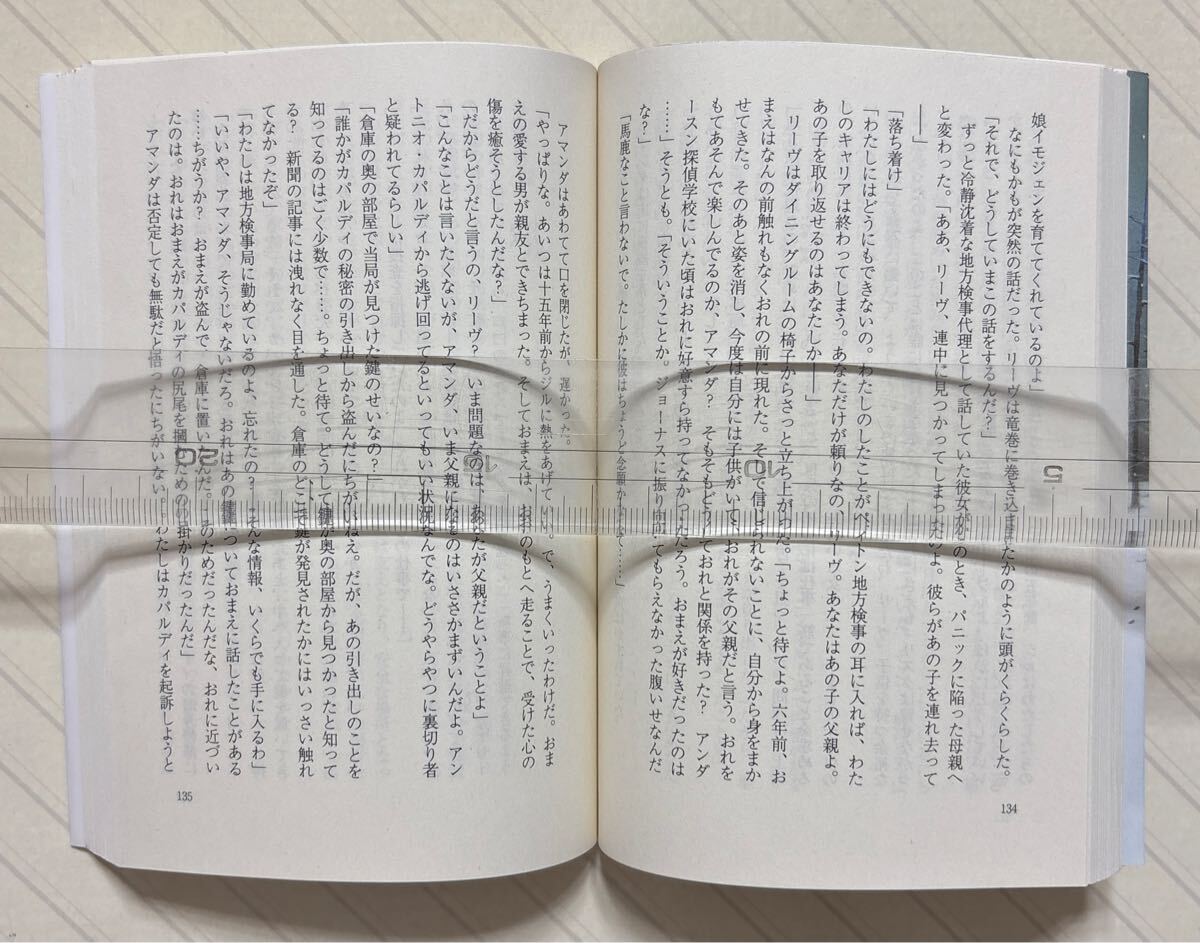 娘イモジェンを育ててくれているのよ」
なにもかもが突然の話だった。リーヴは竜巻に巻き込まれたかのように頭がくらくらした。
「それで、どうしていまこの話をするんだ？」
ずっと冷静沈着な地方検事代理として話していた彼女が、このとき、パニックに陥った母親へ
と変わった。「ああ、リーヴ、連中に見つかってしまったのよ。彼らがあの子を連れ去って
――」
「落ち着け」
「わたしにはどうにもできないの。わたしのしたことがペイトン地方検事の耳に入れば、わた
しのキャリアは終わってしまう。あなただけが頼りなの、リーヴ。あなたはあの子の父親よ。
あの子を取り返せるのはあなたしか――」
リーヴはダイニングルームの椅子からさっと立ち上がった。「ちょっと待てよ。六年前、お
まえはなんの前触れもなくおれの前に現れた。そして信じられないことに、自分から身をまか
せてきた。そのあと姿を消し、今度は自分には子供がいて、おれがその父親だと言う。おれを
もてあそんで楽しんでるのか、アマンダ？　そもそもどうしておれと関係を持った？　アンダ
ースン探偵学校にいた頃はおれに好意すら持ってなかっただろう。おまえが好きだったのは
……」そうとも。「そういうことか。ジョーナスに振り向いてもらえなかった腹いせなんだ
な？」
「馬鹿なこと言わないで。たしかに彼はちょうど……」
134
アマンダはあわてて口を閉じたが、遅かった。
「やっぱりな。あいつは十五年前からジルに熱をあげていた。で、うまくいったわけだ。おま
えの愛する男が親友とできちまった。そしておまえは、おれのもとへ走ることで、受けた心の
傷を癒そうとしたんだな？」
「だからどうだと言うの、リーヴ？　いま問題なのは、あなたが父親だということよ」
「こんなことは言いたくないが、アマンダ、いま父親になるのはいささかまずいんだよ。アン
トニオ・カパルディから逃げ回ってるといってもいい状況なんでな。どうやらやつに裏切り者
と疑われてるらしい」
「倉庫の奥の部屋で当局が見つけた鍵のせいなの？」
「誰かがカパルディの秘密の引き出しから盗んだにちがいねえ。だが、あの引き出しのことを
知ってるのはごく少数で……。ちょっと待て。どうして鍵が奥の部屋から見つかったと知って
る？　新聞の記事には洩れなく目を通した。倉庫のどこで鍵が発見されたかにはいっさい触れ
てなかったぞ」
「わたしは地方検事局に勤めているのよ、忘れたの？　そんな情報、いくらでも手に入るわ」
「いいや、アマンダ、そうじゃないだろ。おれはあの鍵についておまえに話したことがある
……ちがうか？　おまえが盗んで、倉庫に置いたんだ。このためだったんだな、おれに近づい
たのは。おれはおまえがカパルディの尻尾を摑むための手掛かりだったんだ」
アマンダは否定しても無駄だと悟ったにちがいない。「わたしはカパルディを起訴しようと
135
5
10
15
20